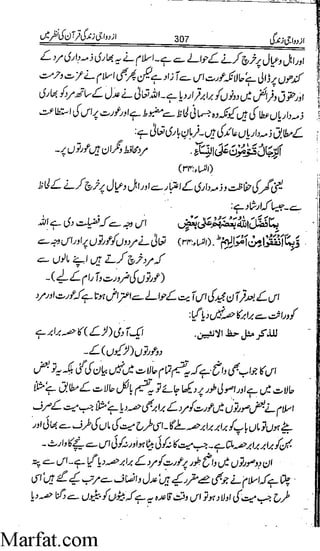 ازدواجی زندگی 307 ازدواجی زندگی قرآن کی نظر میں
اور اہل و عیال پر خرچ کرنے کے حوالے سے ہے۔ اسلام نے یہ بھاری ذمہ داری مرد کے
کندھوں پر ڈالی ہے حالانکہ عورت اس سے آزاد ہے لیکن پھر بھی اسلام نے عزت و حرمت
اور حقوق و فرائض میں دونوں کو برابر قرار دیا ہے۔ اللہ تعالیٰ نے عدل کے ساتھ مرد کو بھاری
ذمہ داریاں عطا کی ہیں کیونکہ وہ جسمانی لحاظ سے مضبوط ہے اور عورت پر اس کی استطاعت
کے مطابق ذمہ داریاں عائد کی ہیں۔ فرمان باری تعالیٰ ہے:
اَلرِّجَالُ قَوّٰمُوْنَ عَلَی النِّسَآءِ۔ مرد محافظ و نگران ہیں عورتوں پر۔
(النساء:۳۴)
یعنی گھر کی حفاظت و ذمہ داری کے اعتبار سے اور اہل و عیال پر خرچ کرنے کے لحاظ
سے۔ جیسا کہ ارشاد ہے:
بِمَا فَضَّلَ اللّٰهُ بَعْضَهُمْ عَلٰی بَعْضٍ اس وجہ سے کہ فضیلت دی ہے اللہ
وَّبِمَآ اَنْفَقُوْا مِنْ اَمْوَالِهِمْ ؕ۔ (النساء:۳۴) تعالیٰ نے مردوں کو عورتوں پر اور اس وجہ سے
کہ مرد خرچ کرتے ہیں اپنے مالوں سے
(عورتوں کی ضرورت و آرام کے لیے)۔
اس کے بعد قرآن مجید کی اس آیت کے حوالے سے اعتراض ہوتا ہے کہ عورت اور مرد
کو وراثت سے برابر کا حصہ نہیں دیا گیا:
للذکر مثل حظ الانثیین۔ ایک آدمی (لڑکے) کا حصہ برابر ہے
دو عورتوں (لڑکیوں) کے۔
اس کا جواب بھی واضح ہے کہ یہ تقسیم تمام حالات میں نہیں بیان کی گئی بلکہ یہ تو بعض
حالات میں ہے اور اصولی طور پر دیکھا جائے تو یہ تقسیم بالکل حالات کے مطابق ہے مثلاً
اسلام نے بعض صورتوں میں عورت کو مرد کے برابر بھی حصہ دیا ہے مثلاً جب میت کے صرف
بیٹے ہوں تو ماں باپ کو برابر برابر حصہ ملے گا۔ اسی طرح میت کی ماں کی طرف سے بھائی اور
بہن کو برابر برابر حصہ ملتا ہے۔ جب میت کا نہ کوئی بیٹا ہو اور نہ کوئی اس سے نیچے کا وارث۔
ان دو صورتوں میں واضح طور پر عورت کو مرد کے برابر حصہ دیا گیا ہے۔ اس سے پتہ
چلتا ہے کہ اسلام نے جو بھی حصے مقرر کیے ہیں عدل و انصاف سے مرتب کیے گئے ہیں اسی
طرح جب میت کی اولاد ہو تو اس وقت قاعدہ یہ ہے کہ بیٹوں کو بیٹیوں سے دگنا حصہ دیا
Marfat.com